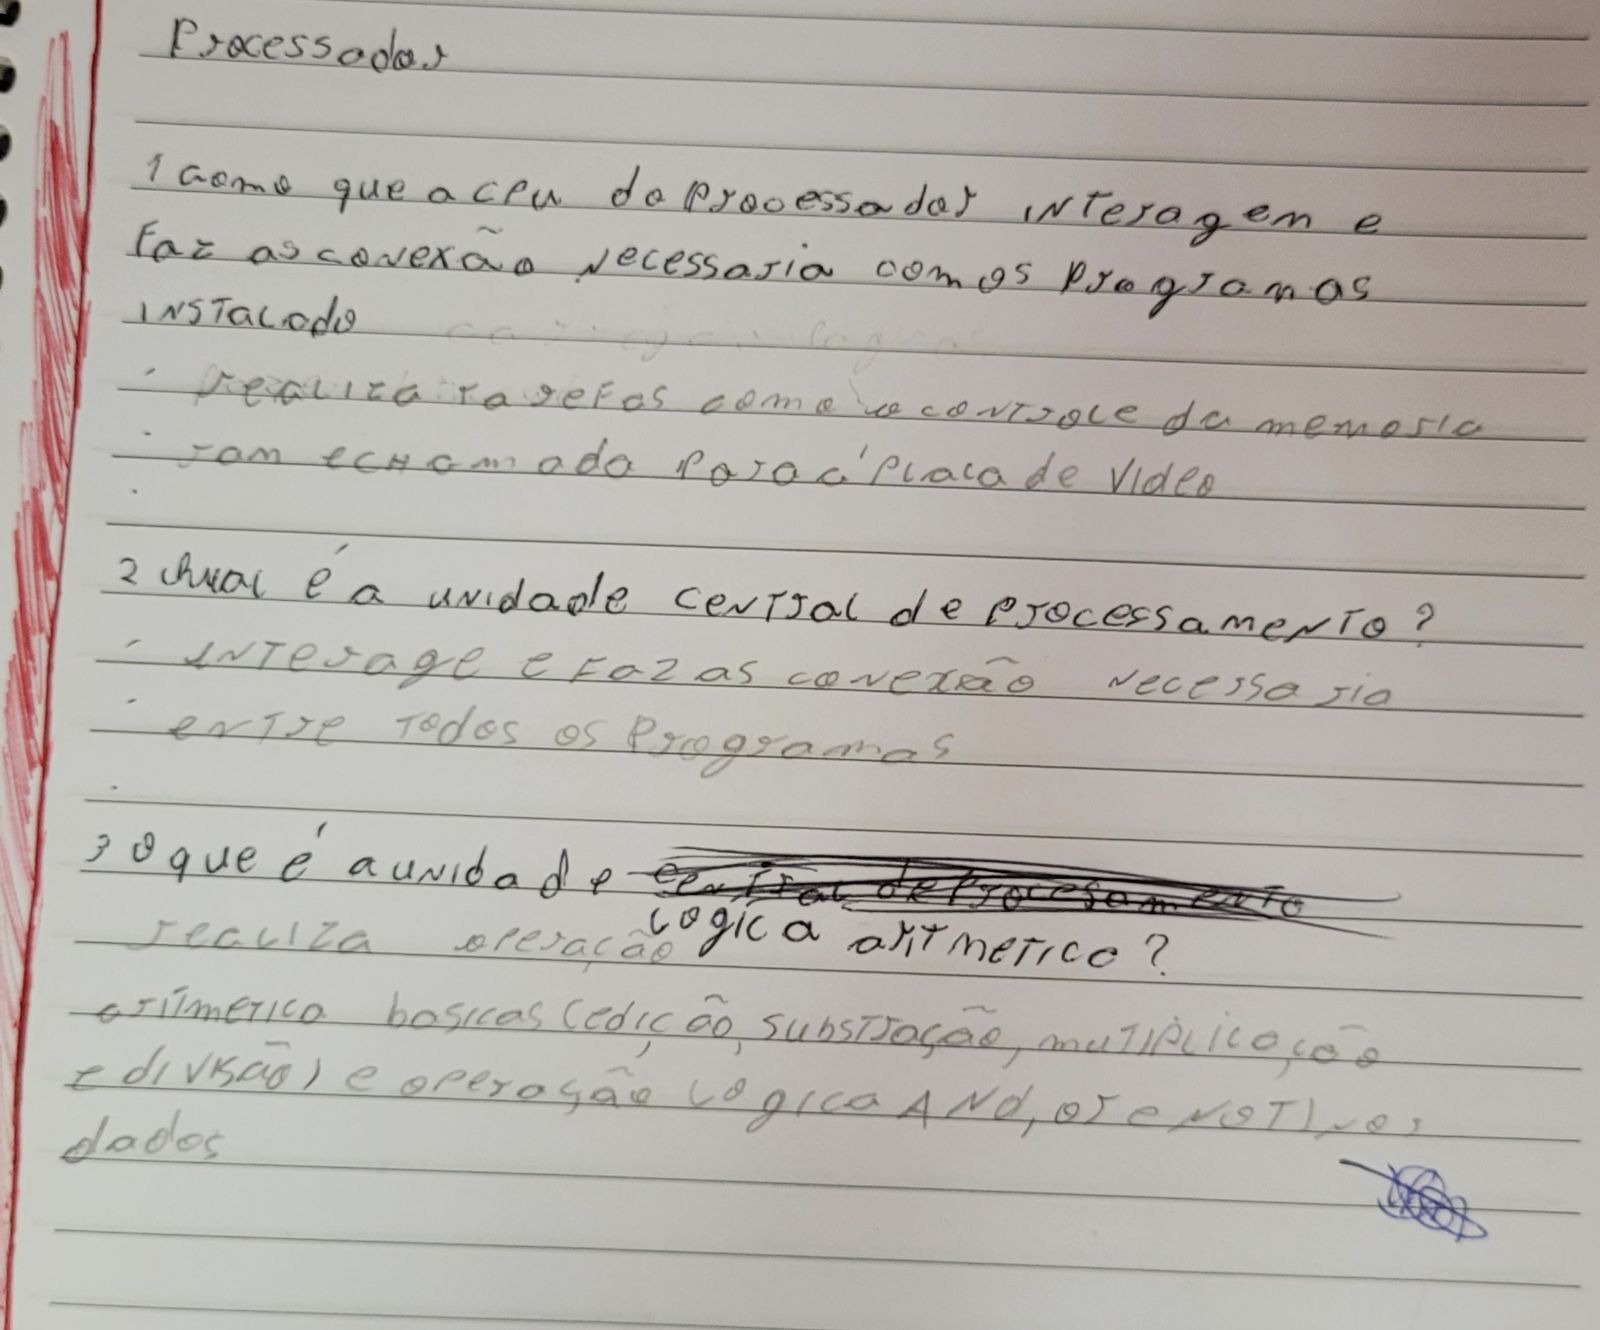 Processador
1 como que a CPU do processador interagem e
faz as conexão necessaria com os programas
instalado
realiza tarefas como o controle da memoria
ram e chamada para a placa de video
2 Qual é a unidade central de processamento?
interage e faz as conexão necessaria
entre todos os programas
3 o que é a unidade central de processamento
logica aritmetico?
realiza operação
aritmetica basicas (edição, substração, multiplicação
e divisão) e operação logica AND, or e NOT) nos
dados